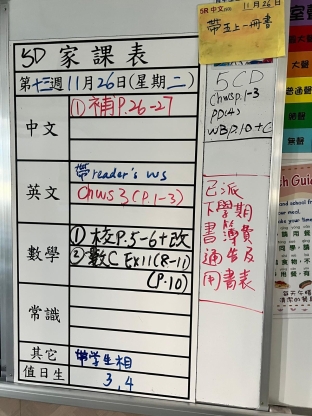 5D 家課表
第十三週 11月26日(星期二)
中文
① 補P.26-27
英文
帶reader's ws
① hws 3 (P.1-3)
數學
① 校P.5-6+改
② 數C Ex11(8-11)
(P.10)
常識
其它
帶學生相
值日生
3, 4
5R 中文
11月26日
帶五上一冊書
5CD
Ghwsp.1-3
PD(4)
WBp.10+C
已派
下學期
書簿費
通告及
用書表
大聲
普通聲
細聲
無聲